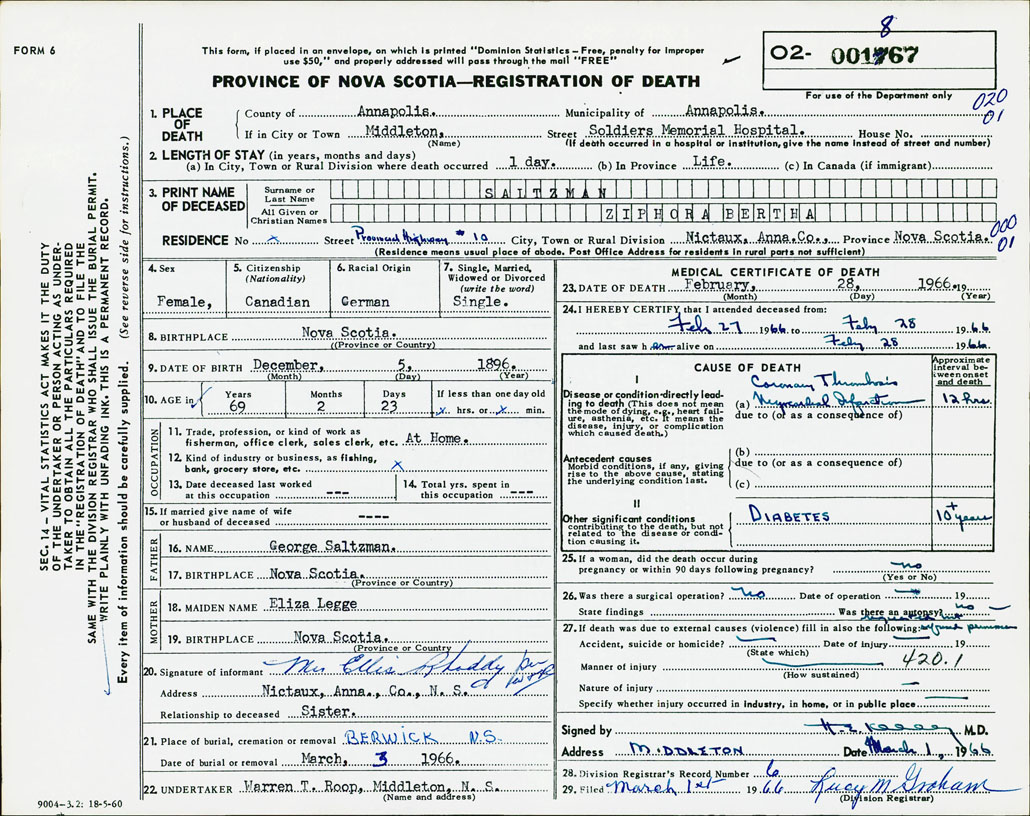 8
FORM 6
This form, if placed in an envelope, on which is printed "Dominion Statistics – Free, penalty for improper
use $50," and properly addressed will pass through the mail "FREE"
O2- 001767
PROVINCE OF NOVA SCOTIA—REGISTRATION OF DEATH
For use of the Department only
020
01
1. PLACE OF DEATH
County of Annapolis. Municipality of Annapolis.
If in City or Town Middleton, Street Soldiers Memorial Hospital. House No.
(Name) (If death occurred in a hospital or institution, give the name instead of street and number)
2. LENGTH OF STAY (in years, months and days)
(a) In City, Town or Rural Division where death occurred 1 day. (b) In Province Life. (c) In Canada (if immigrant)
3. PRINT NAME OF DECEASED
Surname or Last Name SALTZMAN
All Given or Christian Names ZIPHORA BERTHA
RESIDENCE No x Street Provincial Highway # 10 City, Town or Rural Division Nictaux, Anna.Co., Province Nova Scotia.
000
01
(Residence means usual place of abode. Post Office Address for residents in rural parts not sufficient)
4. Sex
Female,
5. Citizenship
(Nationality)
Canadian
6. Racial Origin
German
7. Single, Married,
Widowed or Divorced
(write the word)
Single.
8. BIRTHPLACE Nova Scotia.
(Province or Country)
9. DATE OF BIRTH December, 5, 1896.
(Month) (Day) (Year)
10. AGE in
Years Months Days If less than one day old
69 2 23 x hrs. or x min.
OCCUPATION
11. Trade, profession, or kind of work as
fisherman, office clerk, sales clerk, etc. At Home.
12. Kind of industry or business, as fishing,
bank, grocery store, etc. x
13. Date deceased last worked
at this occupation ---
14. Total yrs. spent in
this occupation ---
15. If married give name of wife
or husband of deceased ----
FATHER
16. NAME George Saltzman.
17. BIRTHPLACE Nova Scotia.
(Province or Country)
MOTHER
18. MAIDEN NAME Eliza Legge
19. BIRTHPLACE Nova Scotia.
(Province or Country)
20. Signature of informant Mrs Ellis Rhoddy per
Address Nictaux, Anna., Co., N. S.
Relationship to deceased Sister.
21. Place of burial, cremation or removal BERWICK N.S.
Date of burial or removal March, 3 1966.
22. UNDERTAKER Warren T. Roop, Middleton, N. S.
(Name and address)
MEDICAL CERTIFICATE OF DEATH
23. DATE OF DEATH February, 28, 1966.19
(Month) (Day) (Year)
24. I HEREBY CERTIFY that I attended deceased from:
Feb 27 1966 to Feby 28 1966
and last saw h er alive on Feby 28 1966
CAUSE OF DEATH
Approximate
interval be-
tween onset
and death
I
Disease or condition directly lead-
ing to death (This does not mean
the mode of dying, e.g., heart fail-
ure, asthenia, etc. It means the
disease, injury, or complication
which caused death.)
Coronary Thrombosis
(a) Myocardial Infarction 12 hrs.
due to (or as a consequence of)
Antecedent causes
Morbid conditions, if any, giving
rise to the above cause, stating
the underlying condition last.
(b)
due to (or as a consequence of)
(c)
II
Other significant conditions
contributing to the death, but not
related to the disease or condi-
tion causing it.
DIABETES 10+ years
25. If a woman, did the death occur during
pregnancy or within 90 days following pregnancy? no
(Yes or No)
26. Was there a surgical operation? no Date of operation 19
State findings Was there an autopsy? no
27. If death was due to external causes (violence) fill in also the following:
Accident, suicide or homicide? Date of injury 19
(State which)
420.1
Manner of injury
(How sustained)
Nature of injury
Specify whether injury occurred in industry, in home, or in public place
Signed by H. E. Kelley M.D.
Address MIDDLETON Date March 1, 1966
28. Division Registrar's Record Number 6
29. Filed March 1st 1966 Lucy M Graham
(Division Registrar)
SEC. 14 – VITAL STATISTICS ACT MAKES IT THE DUTY
OF THE UNDERTAKER OR PERSON ACTING AS UNDER-
TAKER TO OBTAIN ALL THE PARTICULARS REQUIRED
IN THE "REGISTRATION OF DEATH" AND TO FILE THE
SAME WITH THE DIVISION REGISTRAR WHO SHALL ISSUE THE BURIAL PERMIT.
WRITE PLAINLY WITH UNFADING INK. THIS IS A PERMANENT RECORD.
Every item of information should be carefully supplied. (See reverse side for instructions.)
9004-3.2: 18-5-60